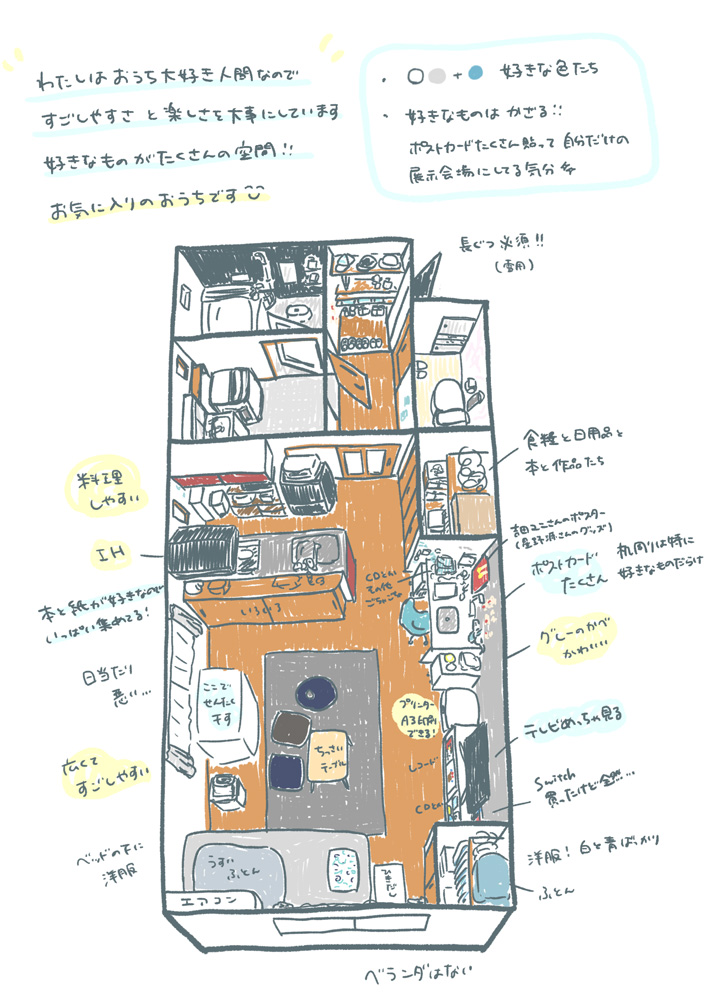 わたしは おうち大好き人間なので
すごしやすさ と 楽しさを大事にしています
好きなもの がたくさんの空間!!
お気に入りのおうちです
・ ○ ● + ● 好きな色たち
・ 好きなものは かざる!!
ポストカードたくさん貼って 自分だけの
展示会場にしてる気分
長ぐつ必須!!
(雪用)
食糧と日用品と
本と作品たち
料理
しやすい
IH
(星野源さんのグッズ)
ポストカード
たくさん
机周りは特に
好きなものだらけ
CDとか
その他
ごちゃごちゃ
本と紙が好きなので
いっぱい集めてる!
いろいろ
グレーのかべ
かわいい
日当たり
悪い…
ここで
せんたく
干す
プリンター
A3印刷
できる!
ちっさい
テーブル
テレビめっちゃ見る
広くて
すごしやすい
レコード
Switch
買ったけど全然…
CDとか
ベッドの下に
洋服
うすい
ふとん
ひきだし
洋服! 白と青ばっかり
ふとん
エアコン
ベランダはない